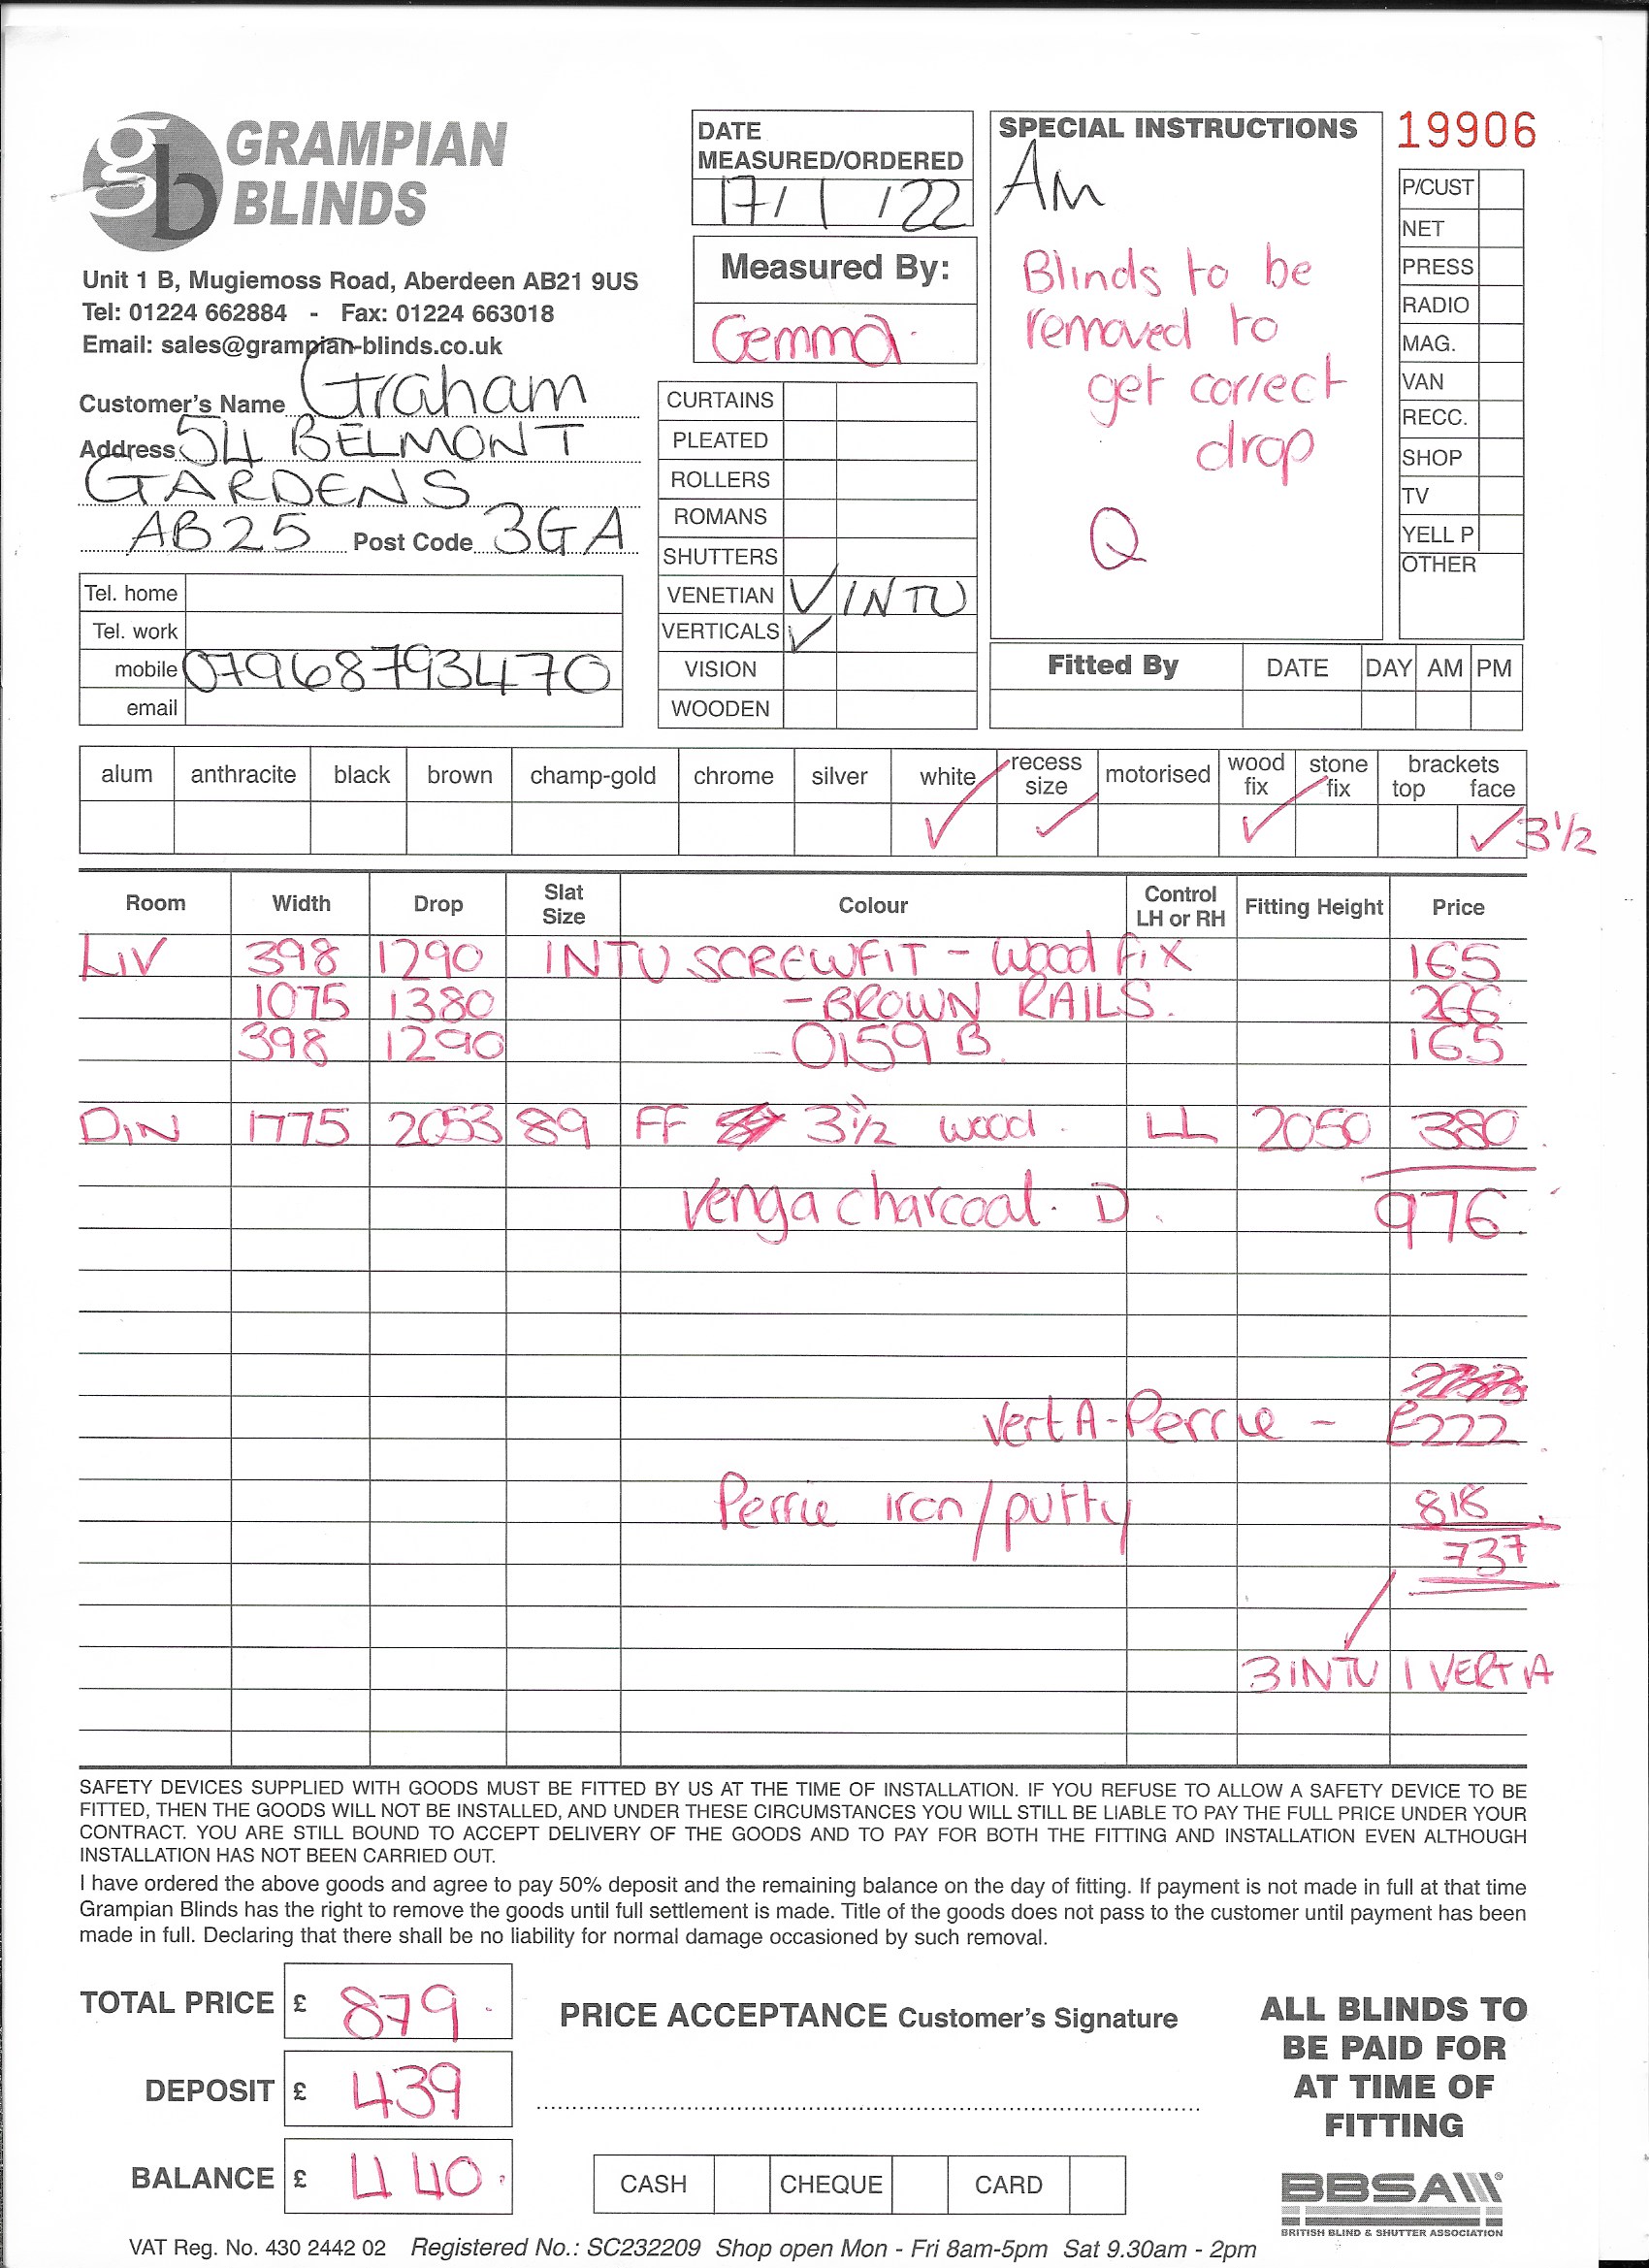 GRAMPIAN
BLINDS
Unit 1 B, Mugiemoss Road, Aberdeen AB21 9US
Tel: 01224 662884 - Fax: 01224 663018
Email: sales@grampian-blinds.co.uk
Customer's Name Graham
Address 54 BELMONT
GARDENS
AB25 Post Code 3GA
Tel. home
Tel. work
mobile 07968793470
email
DATE
MEASURED/ORDERED
17/1/22
Measured By:
Gemma.
CURTAINS
PLEATED
ROLLERS
ROMANS
SHUTTERS
VENETIAN ✓ INTU
VERTICALS ✓
VISION
WOODEN
SPECIAL INSTRUCTIONS
AM
Blinds to be
removed to
get correct
drop
Q
19906
P/CUST
NET
PRESS
RADIO
MAG.
VAN
RECC.
SHOP
TV
YELL P
OTHER
Fitted By DATE DAY AM PM
alum anthracite black brown champ-gold chrome silver white recess size motorised wood fix stone fix brackets top face
✓ ✓ ✓ ✓ 3 1/2
Room Width Drop Slat Size Colour Control LH or RH Fitting Height Price
LIV 398 1290 INTU SCREWFIT - Wood fix 165
1075 1380 - BROWN RAILS. 266
398 1290 - 0159 B. 165
DIN 1775 2053 89 FF 3 1/2 wood. LL 2050 380
Venga charcoal. D. 976
Vert A - Perrie - £222
Perrie iron/putty 818
737
3 INTU 1 VERT A
SAFETY DEVICES SUPPLIED WITH GOODS MUST BE FITTED BY US AT THE TIME OF INSTALLATION. IF YOU REFUSE TO ALLOW A SAFETY DEVICE TO BE
FITTED, THEN THE GOODS WILL NOT BE INSTALLED, AND UNDER THESE CIRCUMSTANCES YOU WILL STILL BE LIABLE TO PAY THE FULL PRICE UNDER YOUR
CONTRACT. YOU ARE STILL BOUND TO ACCEPT DELIVERY OF THE GOODS AND TO PAY FOR BOTH THE FITTING AND INSTALLATION EVEN ALTHOUGH
INSTALLATION HAS NOT BEEN CARRIED OUT.
I have ordered the above goods and agree to pay 50% deposit and the remaining balance on the day of fitting. If payment is not made in full at that time
Grampian Blinds has the right to remove the goods until full settlement is made. Title of the goods does not pass to the customer until payment has been
made in full. Declaring that there shall be no liability for normal damage occasioned by such removal.
TOTAL PRICE £ 879.
DEPOSIT £ 439
BALANCE £ 440.
PRICE ACCEPTANCE Customer's Signature
CASH CHEQUE CARD
ALL BLINDS TO
BE PAID FOR
AT TIME OF
FITTING
BBSA
BRITISH BLIND & SHUTTER ASSOCIATION
VAT Reg. No. 430 2442 02 Registered No.: SC232209 Shop open Mon - Fri 8am-5pm Sat 9.30am - 2pm